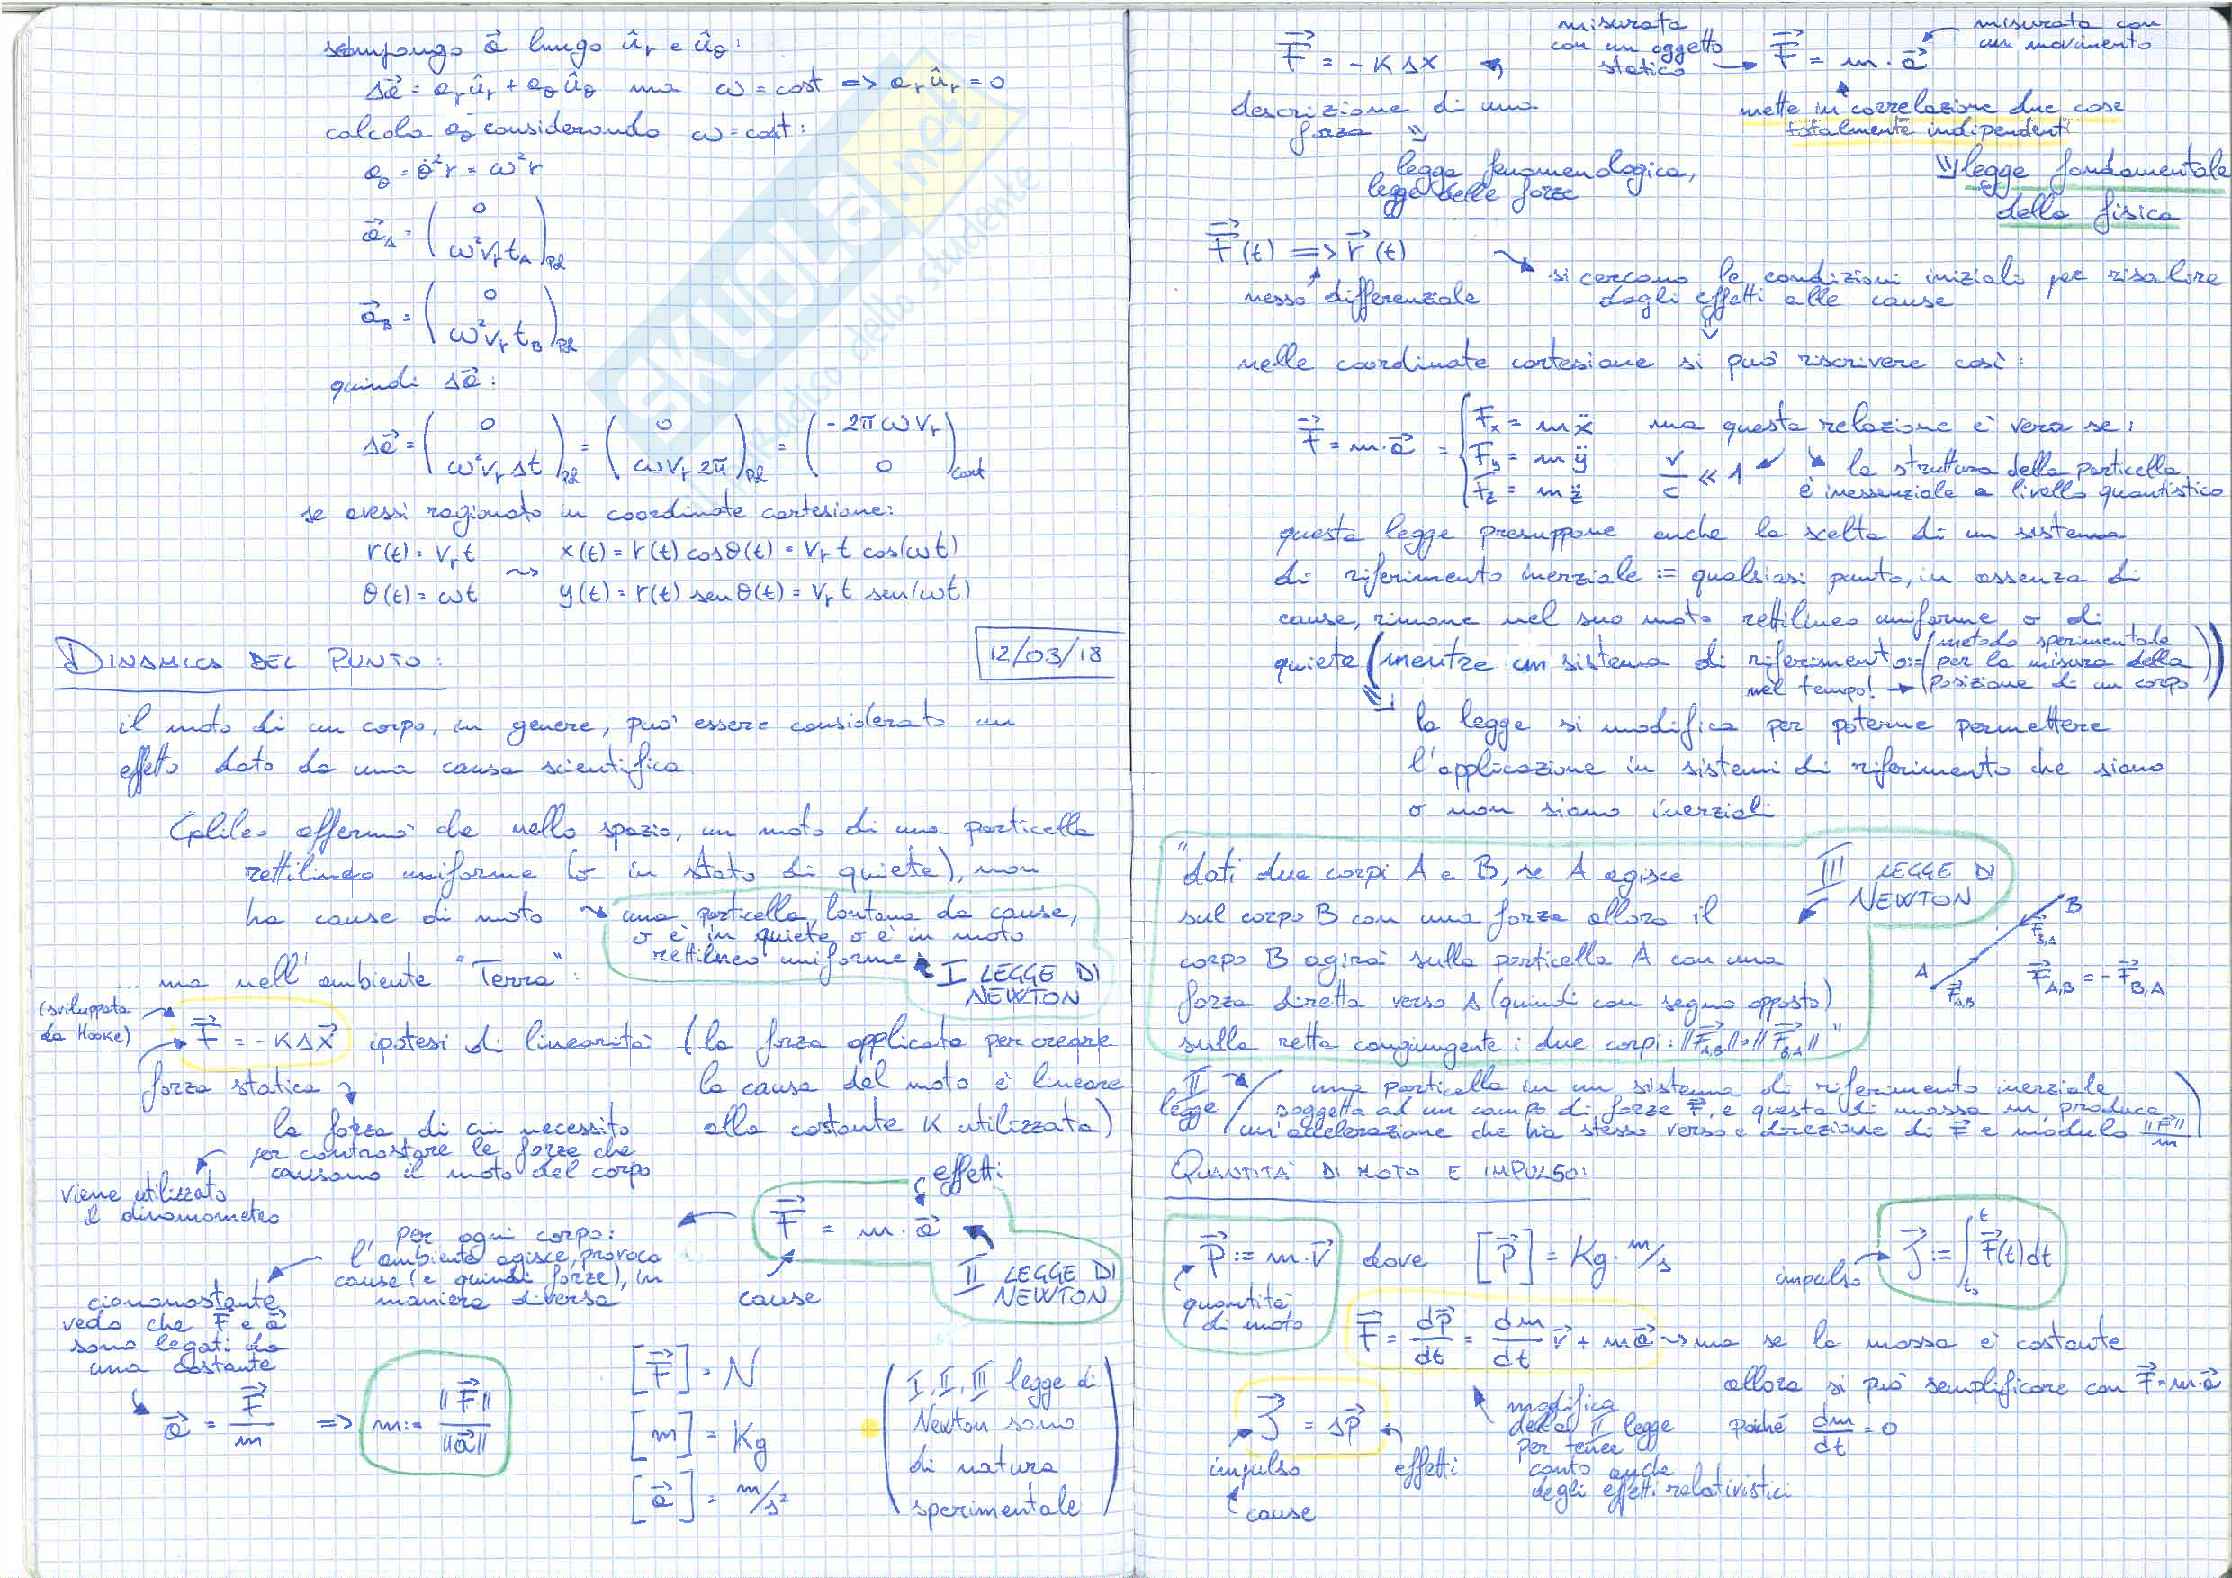 scompongo a⃗ lungo û_r e û_θ:
Δa⃗ = a_r û_r + a_θ û_θ ma ω = cost => a_r û_r = 0
calcolo a_θ considerando ω = cost:
a_θ = θ̇² r = ω² r
a⃗_A = (0, ω² v_r t_A)
a⃗_B = (0, ω² v_r t_B)
quindi Δa⃗:
Δa⃗ = (0, ω² v_r Δt) = (0, ω v_r 2π) = (-2π ω v_r, 0)_cart
se avessi ragionato in coordinate cartesiane:
r(t) = v_r t x(t) = r(t) cosθ(t) = v_r t cos(ωt)
θ(t) = ωt y(t) = r(t) senθ(t) = v_r t sen(ωt)
DINAMICA DEL PUNTO: 12/03/18
il moto di un corpo, in genere, può essere considerato un
effetto dato da una causa scientifica
Galileo affermò che nello spazio, un moto di una particella
rettilineo uniforme (o in stato di quiete), non
ha cause di moto ~> una particella, lontana da cause,
o è in quiete o è in moto
rettilineo uniforme
I LEGGE DI
NEWTON
... ma nell'ambiente "Terra":
(sviluppata
da Hooke)
F⃗ = -KΔx⃗ ipotesi di linearità (la forza applicata per creare
la causa del moto è lineare
alla costante K utilizzata)
forza statica
la forza di cui necessito
per contrastare le forze che
causano il moto del corpo
viene utilizzato
il dinamometro
effetti
F⃗ = m · a⃗
cause
II LEGGE DI
NEWTON
per ogni corpo:
l'ambiente agisce, provoca
cause (e quindi forze), in
maniera diversa
ciononostante,
vedo che F⃗ e a⃗
sono legati da
una costante
a⃗ = F⃗/m => m := ||F⃗||/||a⃗||
[F⃗] = N
[m] = Kg
[a⃗] = m/s²
(I, II, III legge di
Newton sono
di natura
sperimentale)
F⃗ = -KΔx
misurata
con un oggetto
statico
F⃗ = m · a⃗
misurata con
un movimento
descrizione di una
forza
legge fenomenologica,
legge delle forze
mette in correlazione due cose
totalmente indipendenti
legge fondamentale
della fisica
F⃗(t) => r⃗(t)
nesso differenziale
si cercano le condizioni iniziali per risalire
dagli effetti alle cause
nelle coordinate cartesiane si può riscrivere così:
F⃗ = m · a⃗ = { F_x = mẍ
F_y = mÿ
F_z = mz̈
ma questa relazione è vera se:
v/c << 1
la struttura della particella
è inessenziale a livello quantistico
questa legge presuppone anche la scelta di un sistema
di riferimento inerziale := qualsiasi punto, in assenza di
cause, rimane nel suo moto rettilineo uniforme o di
quiete (mentre un sistema di riferimento := (metodo sperimentale
per la misura della
posizione di un corpo))
nel tempo!
la legge si modifica per poterne permettere
l'applicazione in sistemi di riferimento che siano
o non siano inerziali
"dati due corpi A e B, se A agisce
sul corpo B con una forza allora il
corpo B agirà sulla particella A con una
forza diretta verso A (quindi con segno opposto)
sulla retta congiungente i due corpi: ||F⃗_A,B|| = ||F⃗_B,A||"
III LEGGE DI
NEWTON
B
F⃗_B,A
A
F⃗_A,B
F⃗_A,B = -F⃗_B,A
II
legge
(una particella in un sistema di riferimento inerziale
soggetta ad un campo di forze F⃗, e questa di massa m, produce
un'accelerazione che ha stesso verso e direzione di F⃗ e modulo ||F⃗||/m)
QUANTITÀ DI MOTO E IMPULSO:
p⃗ := m · v⃗ dove [p⃗] = Kg · m/s
quantità
di moto
impulso
J⃗ := ∫_{t₀}^{t} F⃗(t)dt
F⃗ = dp⃗/dt = dm/dt v⃗ + ma⃗ ~> ma se la massa è costante
allora si può semplificare con F⃗ = m·a⃗
poiché dm/dt = 0
modifica
della II legge
per tener
conto anche
degli effetti relativistici
J⃗ = Δp⃗
impulso
effetti
cause
SKUOLA.net